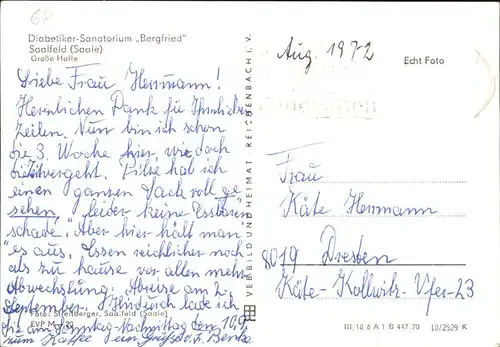 68
Diabetiker-Sanatorium „Bergfried"
Saalfeld (Saale)
Große Halle
Liebe Frau Herrmann!
Herzlichen Dank für Ihre lieben
Zeilen. Nun bin ich schon
die 3. Woche hier, wie doch
die Zeit vergeht. Pilze hab ich
einen ganzen Sack voll "ge
sehen," leider keine Essbaren
schade. Aber hier hält man
es aus. Essen reichlicher noch
als zu hause vor allen mehr
Abwechslung. Abreise am 2.
September. Hindurch lade ich
Sie am Sonntag-Nachmittag den 10.9.
zum Kaffee ein Grüße v. F.
Foto: Straßberger, Saalfeld (Saale)
EVP M
VERBILD UND HEIMAT REICHENBACH I. V.
Aug. 1972
Echt Foto
Frau
Käte Herrmann
8019 Dresden
Käte-Kollwitz-Ufer 23
III/18/6 A 1 B 447/70 10/2529 K